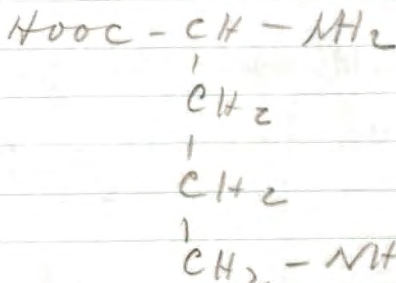 HOOC - CH - NH2
CH2
CH2
CH2 - NH